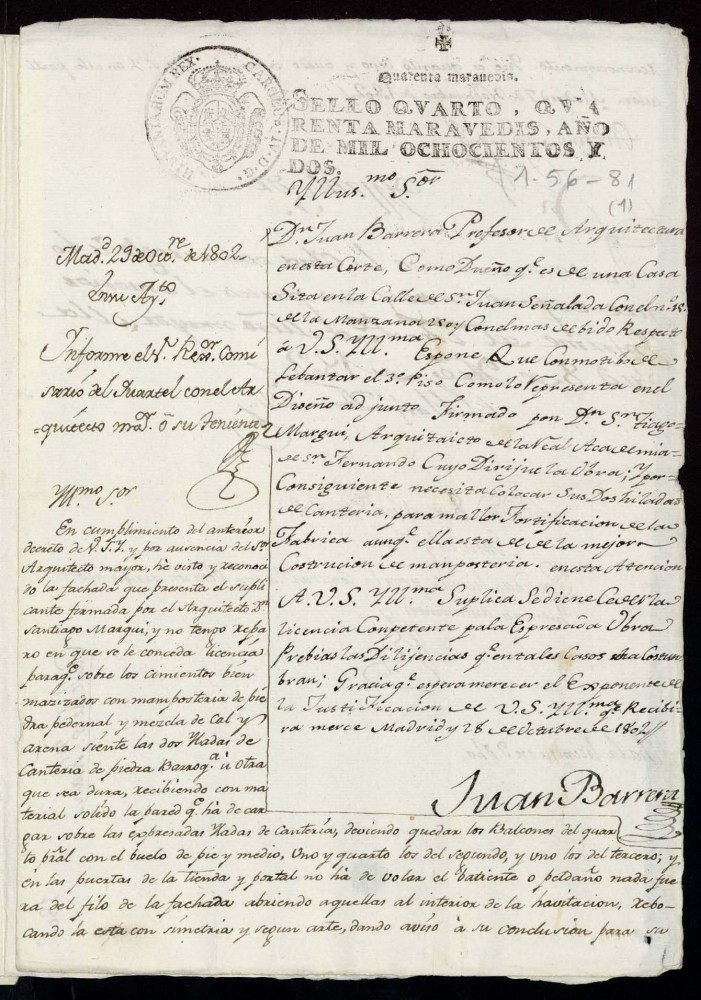 Quarenta maravedis.
SELLO QVARTO, QVA
RENTA MARAVEDIS, AÑO
DE MIL OCHOCIENTOS Y
DOS.
CAROLUS IV D.G.
HISPANIARUM REX.
1-56-81
(1)
Yllus.mo S.or
Dn. Juan Barrera Profesor de Arquitectura
en esta Corte, Como Dueño q.e es de una Casa
Sita en la Calle de Sn. Juan Señalada Con el n.o
de la Manzana Con el mas debido Respecto
a V.S. Yll.ma Espone Que Con motibo de
Lebantar el 3.o Piso Como lo Representa en el
Diseño adjunto Firmado por Dn. Sn.tiago
Margui, Arquitaicto de la Real Academia
de Sn. Fernando Cuyo Dirijue la Obra; Y por
Consiguiente necesita Colocar Sus Dos hiladas
de Canteria, para mallor Fortificacion de la
Fabrica aunq.e ella esta de la mejor
Costrucion de manposteria. en esta Atencion
A. V.S. Yll.ma Suplica Se diene Cederla
licencia Conpetente pa la Espresada Obra
Prebias las Dilijencias q.e en tales Casos se a Costun
bran; Gracia q.e espera merecer el Exponente de
la Justificacion de V.S. Yll.ma q.e Recibi-
ra merce Madrid y 28 de Octubre de 1802//
Juan Barrera
Mad.d 29 de Oct.re de 1802
En su Ay.to
Informe el S.r Rex.or Comi
sario del Quartel con el Ar
=quitecto ma.or ó su teniente
Yll.mo S.or
En cumplimiento del anterior
decreto de V.S.Y. y por ausencia del S.or
Arquitecto mayor, he visto y reconoci
do la fachada que presenta el supli
cante firmada por el Arquitecto Dn.
Santiago Margui, y no tengo repa
ro en que se le conceda licencia
paraq.e sobre los cimientos bien
mazizados con mamposteria de pie
dra pedernal y mezcla de Cal y
arena siente las dos Yladas de
Canteria de piedra Barroq.a ù otra
que sea dura, recibiendo con ma
terial solido la pared q.e ha de car
gar sobre las expresadas Yladas de Cantería, deviendo quedar los Balcones del quar
to pral con el buelo de pie y medio, Uno y quarto los del segundo, y uno los del tercero; y
en las puertas de la tienda y portal no ha de volar el batiente o peldaño nada fue
ra del filo de la fachada abriendo aquellas al interior de la havitacion, revo-
cando la esta con simetria y segun arte, dando aviso à su conclusion para su